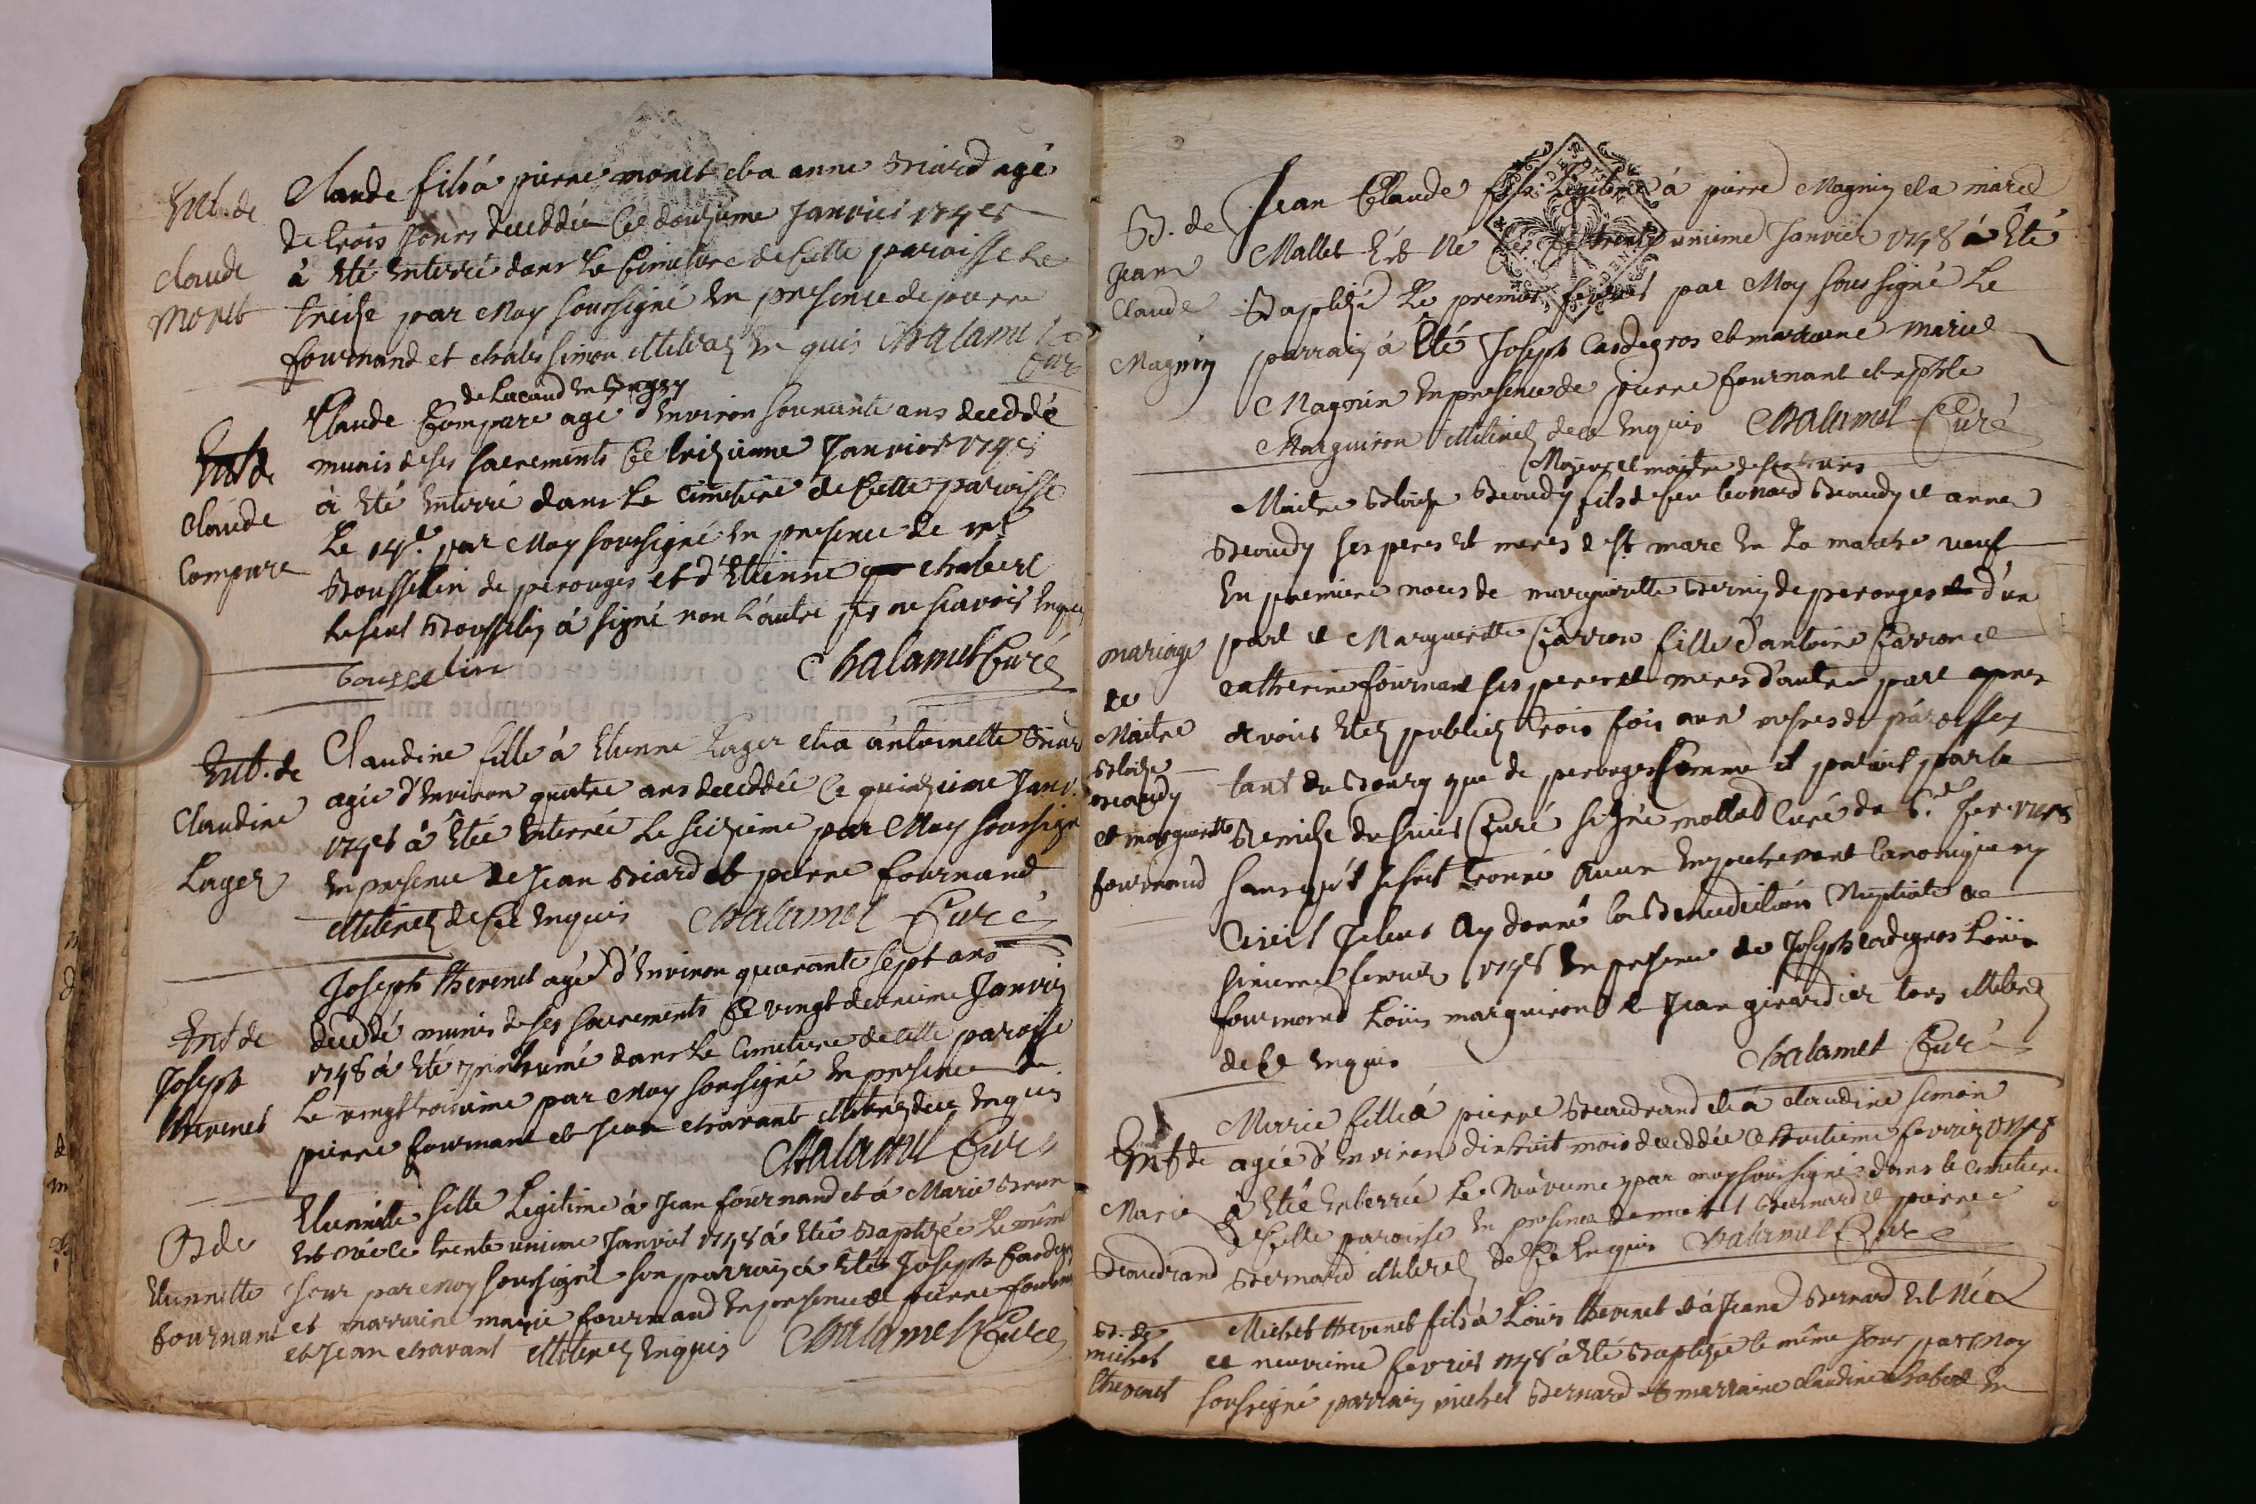 Ent. de
claude
monet
Claude fils à pierre monet et a anne Briard agé
de trois Jours deceddée Ce douzieme Janvier 1748
à Eté Enterré dans Le Cimetiere de Cette paroisse Le
treize par Moy soussigné En presence de pierre
fournand et simon illiterez En quis Chalamel
Curé
de Lacoud en Bugey
Ent de
Claude
Compare
Claude Compare agé d'Environ soixante ans deceddé
munis de ses sacrements Ce treizieme Janvier 1748
à Eté Enterré dans Le Cimetiere de Cette paroisse
Le 14e. par Moy soussigné En presence de
Bousselin de perouges et d'Etienne chabert
Le seul Bousselin à signé non L'autre pr ne scavoir Enquis
bousselin Chalamel Curé
Ent. de
Claudine
Lager
Claudine fille à Etienne Lager et a antoinette Briard
agée d'Environ quatre ans deceddée Ce quinzieme Janv.
1748 à Etée Enterrée Le seizieme par Moy soussigné
En presence de Jean Briard et pierre fournand
illiterez de Ce Enquis Chalamel Curé
Ent de
Joseph
thevenet
Joseph thevenet agé d'Environ quarante sept ans
deceddé munis de ses sacrements Ce vingt deuxieme Janvier
1748 à Eté Inhumé dans Le Cimetiere de Cette paroisse
Le vingt troisieme par Moy soussigné En presence de
pierre fournand et Jean chavant illiterez de ce Enquis
Chalamel Curé
B de
Etiennette
fournand
Etiennette fille Legitime à Jean fournand et à Marie Brun
Est née le trente unieme Janvier 1748 à Etée Baptizée Le même
Jour par Moy soussigné son parrain à Eté Joseph
et marraine marie fournand En presence de pierre fournand
et Jean chavant illiterez Enquis Chalamel Curé
B. de
Jean
Claude
Magnin
Jean Claude fils Legitime à pierre Magnin et a marie
Mallet Est Né Ce trente unieme Janvier 1748 à Eté
Baptizé Le premier fevrier par Moy soussigné Le
parrain à Eté Joseph Cardegros et marraine marie
Magnin En presence de pierre fournant et
Marguiron illiterez de ce Enquis Chalamel Curé
mariage
de
Maitre
Blaize
Beaudy
et marguerite
fournand
Maitre Blaize Beaudy fils de feu leonard Beaudy et anne
Beaudy ses peres et meres de st marc En La marche veuf
En premiere noces de marguerite Bernin de perouges d'un
part et Marguerite Carron fille d'antoine Carron et
catherine fournant ses peres et meres d'autre part apres
avoir Etez publiez trois fois aux messes de paroisses
tant du Bourg que de perouges Comme il paroit par la
Remise du sieur Curé signée mollet Curé du 5.e fev. 1748
sans qu'il se soit trouvé aucun Empechement Canonique ny
Civil Je leur ay donné la Benediction Nuptiale ce
sixieme fevrier 1748 En presence de Joseph cardegros Loüis
fournand Loüis marguiron et Jean girardier tous illiterez
de Ce Enquis Chalamel Curé
Ent de
Marie
Beaudrand
Marie fille à pierre Beaudrand et à claudine simon
agée d'Environ dixhuit mois deceddée Ce huitieme fevrier 1748
à Etée Enterrée Le Neuvieme par moy soussigné dans le Cimetiere
de Cette paroisse En presence de michel Bernard et pierre
Bernard illiterez de Ce Enquis Chalamel Curé
B. de
michel
thevenet
Michel thevenet fils à Loüis thevenet et à Jeane Bernard Est Né
ce neuvieme fevrier 1748 à Eté Baptizée le même Jour par Moy
soussigné parrain michel Bernard et marraine claudine chabert En